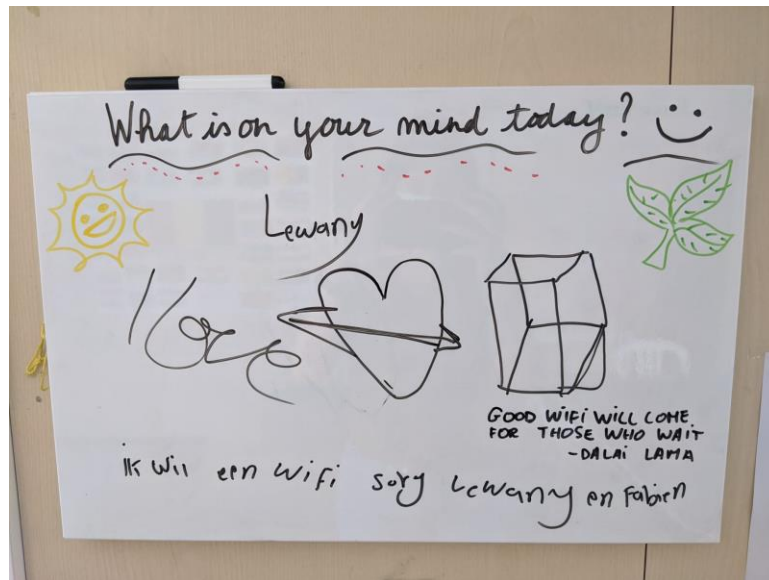 What is on your mind today?
Lewany
love
GOOD WIFI WILL COME
FOR THOSE WHO WAIT
-DALAI LAMA
ik wil een wifi sory Lewany en Fabien